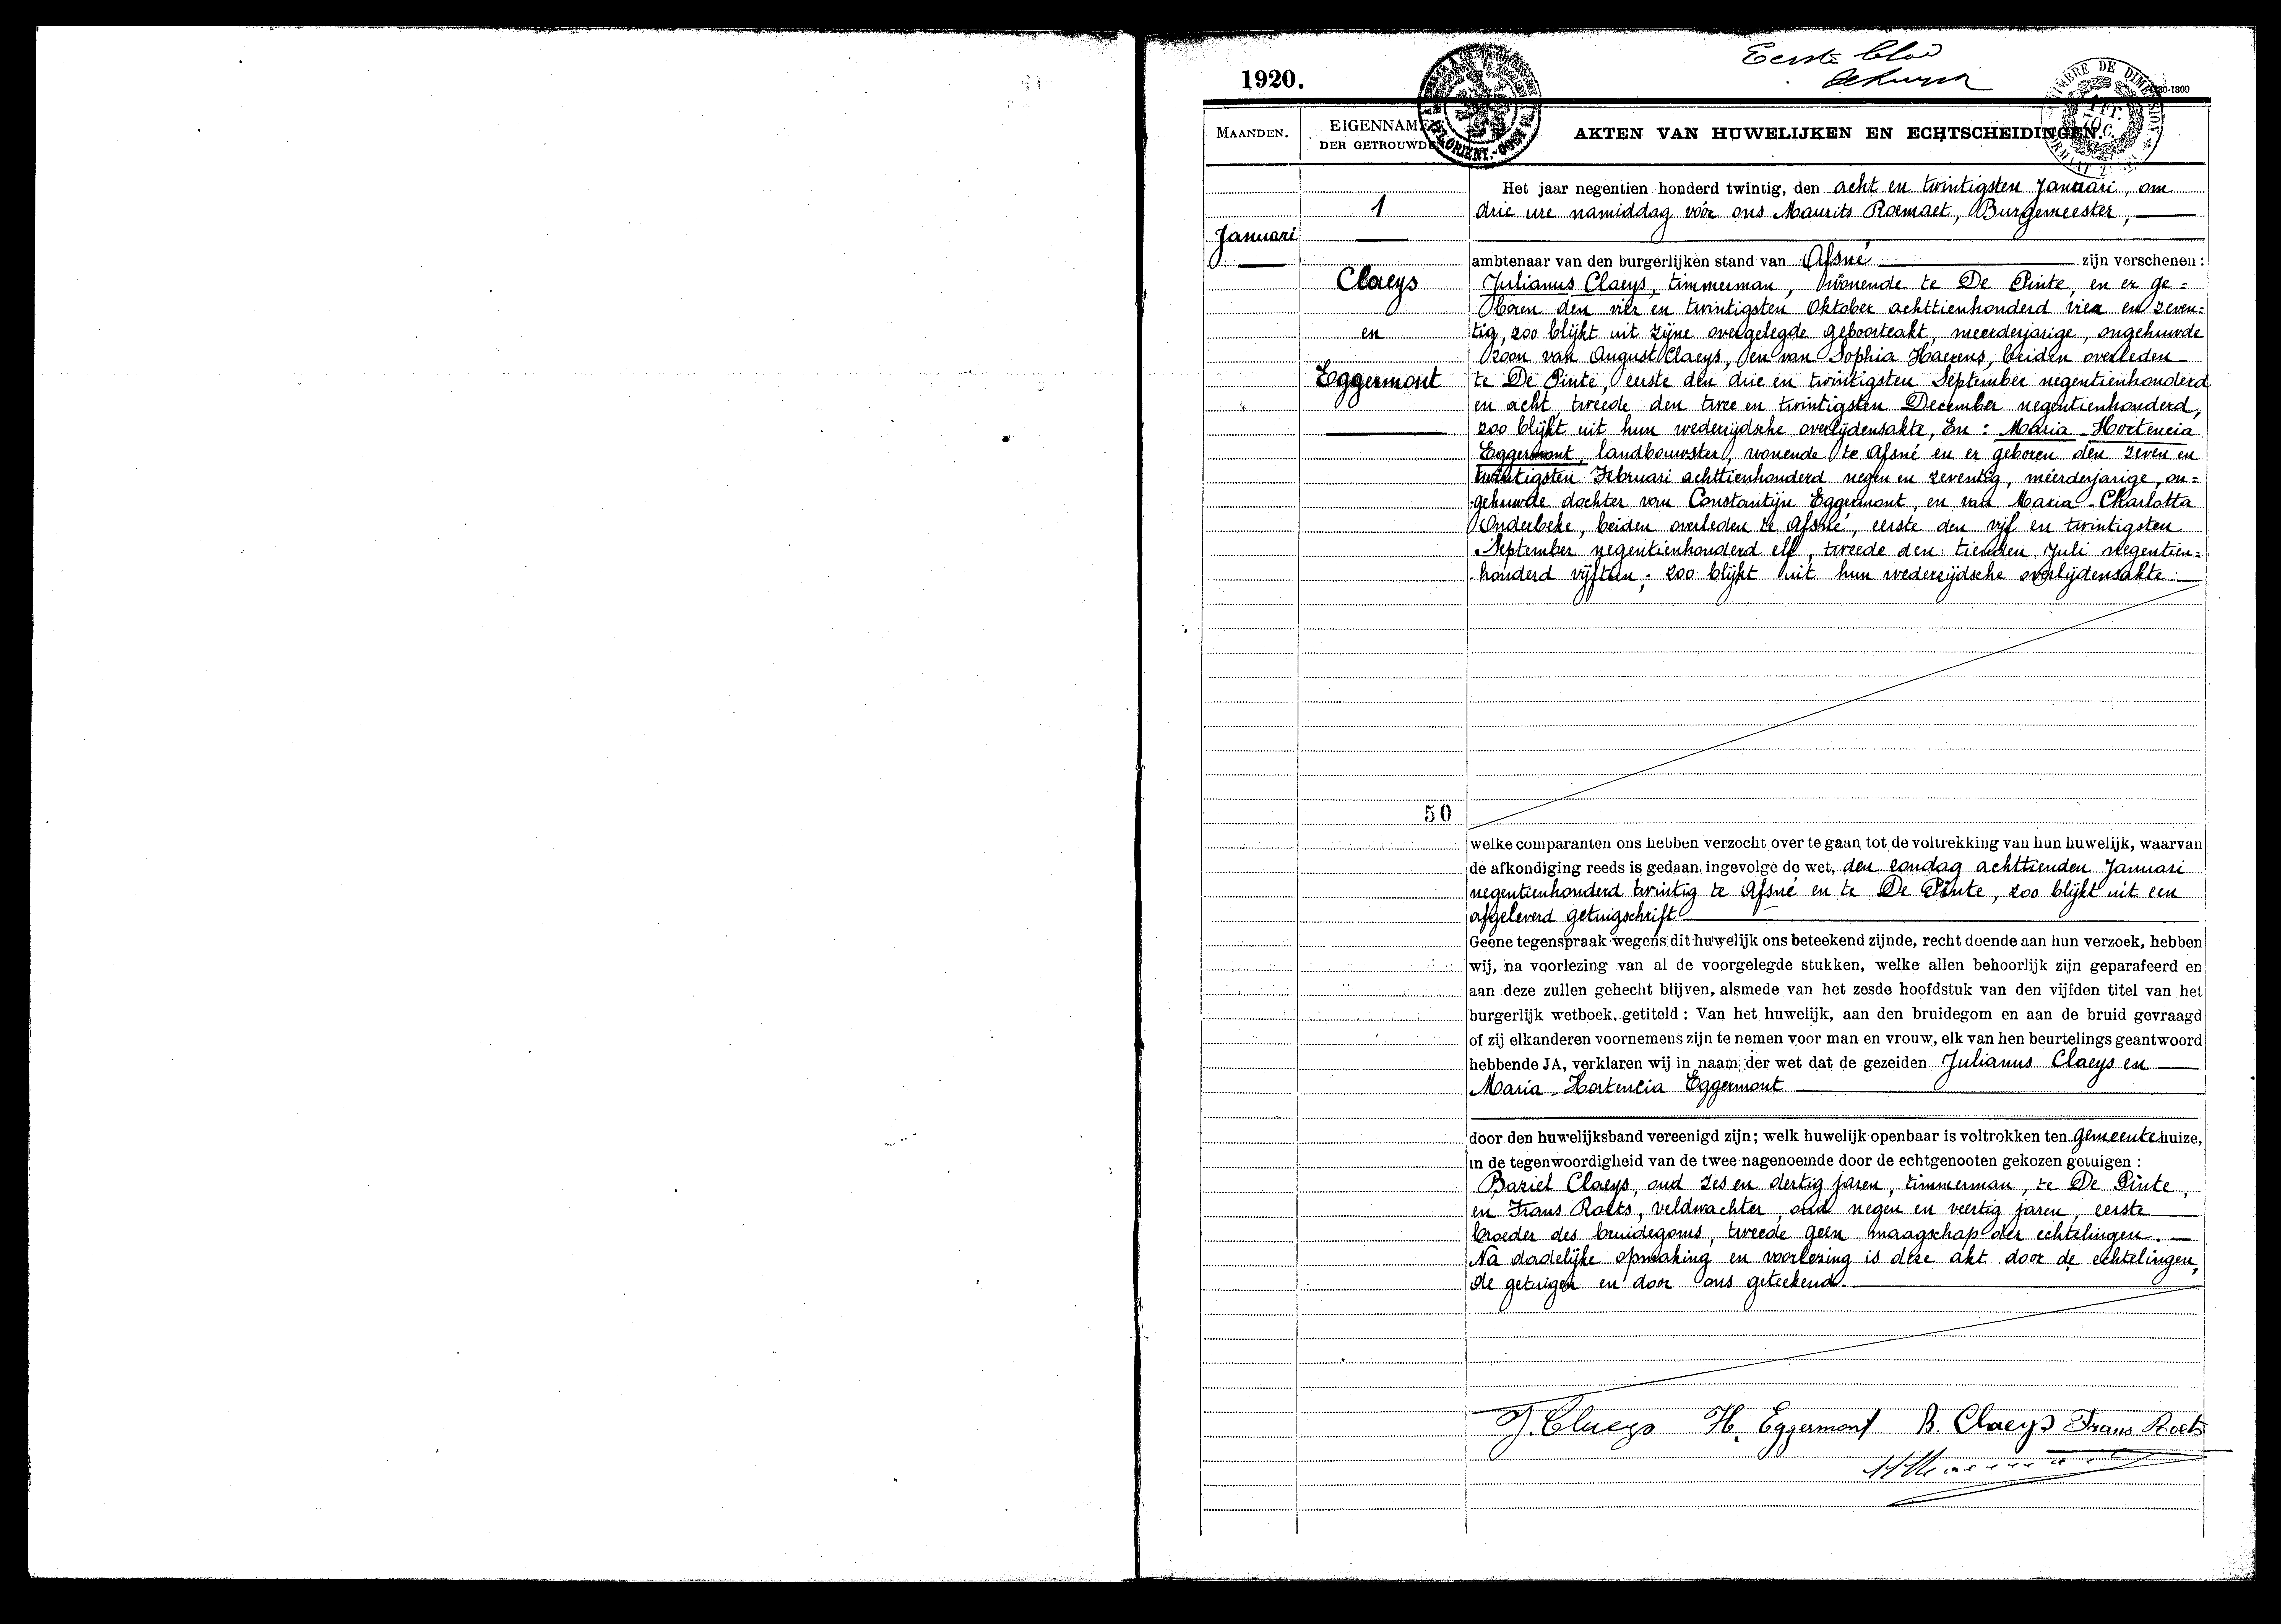 Eerste blad
1920.
30-1309
MAANDEN.
EIGENNAMEN
DER GETROUWDEN
AKTEN VAN HUWELIJKEN EN ECHTSCHEIDINGEN.
Het jaar negentien honderd twintig, den acht en twintigsten Januari, om
1
drie ure namiddag vóór ons Maurits Roemaet, Burgemeester,
Januari
ambtenaar van den burgerlijken stand van Afsné zijn verschenen:
Claeys
Julianus Claeys, timmerman, wonende te De Pinte, en er ge=
boren den vier en twintigsten Oktober achttienhonderd vier en zeven=
en
tig, zoo blijkt uit zijne overgelegde geboorteakt, meerderjarige, ongehuwde
zoon van August Claeys, en van Sophia Haerens, beiden overleden
Eggermont
te De Pinte, eerste den drie en twintigsten September negentienhonderd
en acht, tweede den twee en twintigsten December negentienhonderd,
zoo blijkt uit hun wederzijdsche overlijdensakte, En: Maria Hortencia
Eggermont, landbouwster, wonende te Afsné en er geboren den zeven en
twintigsten Februari achttienhonderd negen en zeventig, meerderjarige, on=
gehuwde dochter van Constantijn Eggermont, en van Maria Charlotta
Onderbeke, beiden overleden te Afsné, eerste den vijf en twintigsten
September negentienhonderd elf, tweede den tienden Juli negentien=
honderd vijftien; zoo blijkt uit hun wederzijdsche overlijdensakte.
50
welke comparanten ons hebben verzocht over te gaan tot de voltrekking van hun huwelijk, waarvan
de afkondiging reeds is gedaan ingevolge de wet, den zondag achttienden Januari
negentienhonderd twintig te Afsné en te De Pinte, zoo blijkt uit een
afgeleverd getuigschrift
Geene tegenspraak wegens dit huwelijk ons beteekend zijnde, recht doende aan hun verzoek, hebben
wij, na voorlezing van al de voorgelegde stukken, welke allen behoorlijk zijn geparafeerd en
aan deze zullen gehecht blijven, alsmede van het zesde hoofdstuk van den vijfden titel van het
burgerlijk wetboek, getiteld: Van het huwelijk, aan den bruidegom en aan de bruid gevraagd
of zij elkanderen voornemens zijn te nemen voor man en vrouw, elk van hen beurtelings geantwoord
hebbende JA, verklaren wij in naam der wet dat de gezeiden Julianus Claeys en
Maria Hortencia Eggermont
door den huwelijksband vereenigd zijn; welk huwelijk openbaar is voltrokken ten gemeentehuize,
in de tegenwoordigheid van de twee nagenoemde door de echtgenooten gekozen getuigen:
Baziel Claeys, oud zes en dertig jaren, timmerman, te De Pinte,
en Frans Roets, veldwachter, oud negen en veertig jaren, eerste
broeder des bruidegoms, tweede geen maagschap der echtelingen.
Na dadelijke opmaking en voorlezing is deze akt door de echtelingen,
de getuigen en door ons geteekend.
J. Claeys H. Eggermont B. Claeys Frans Roets